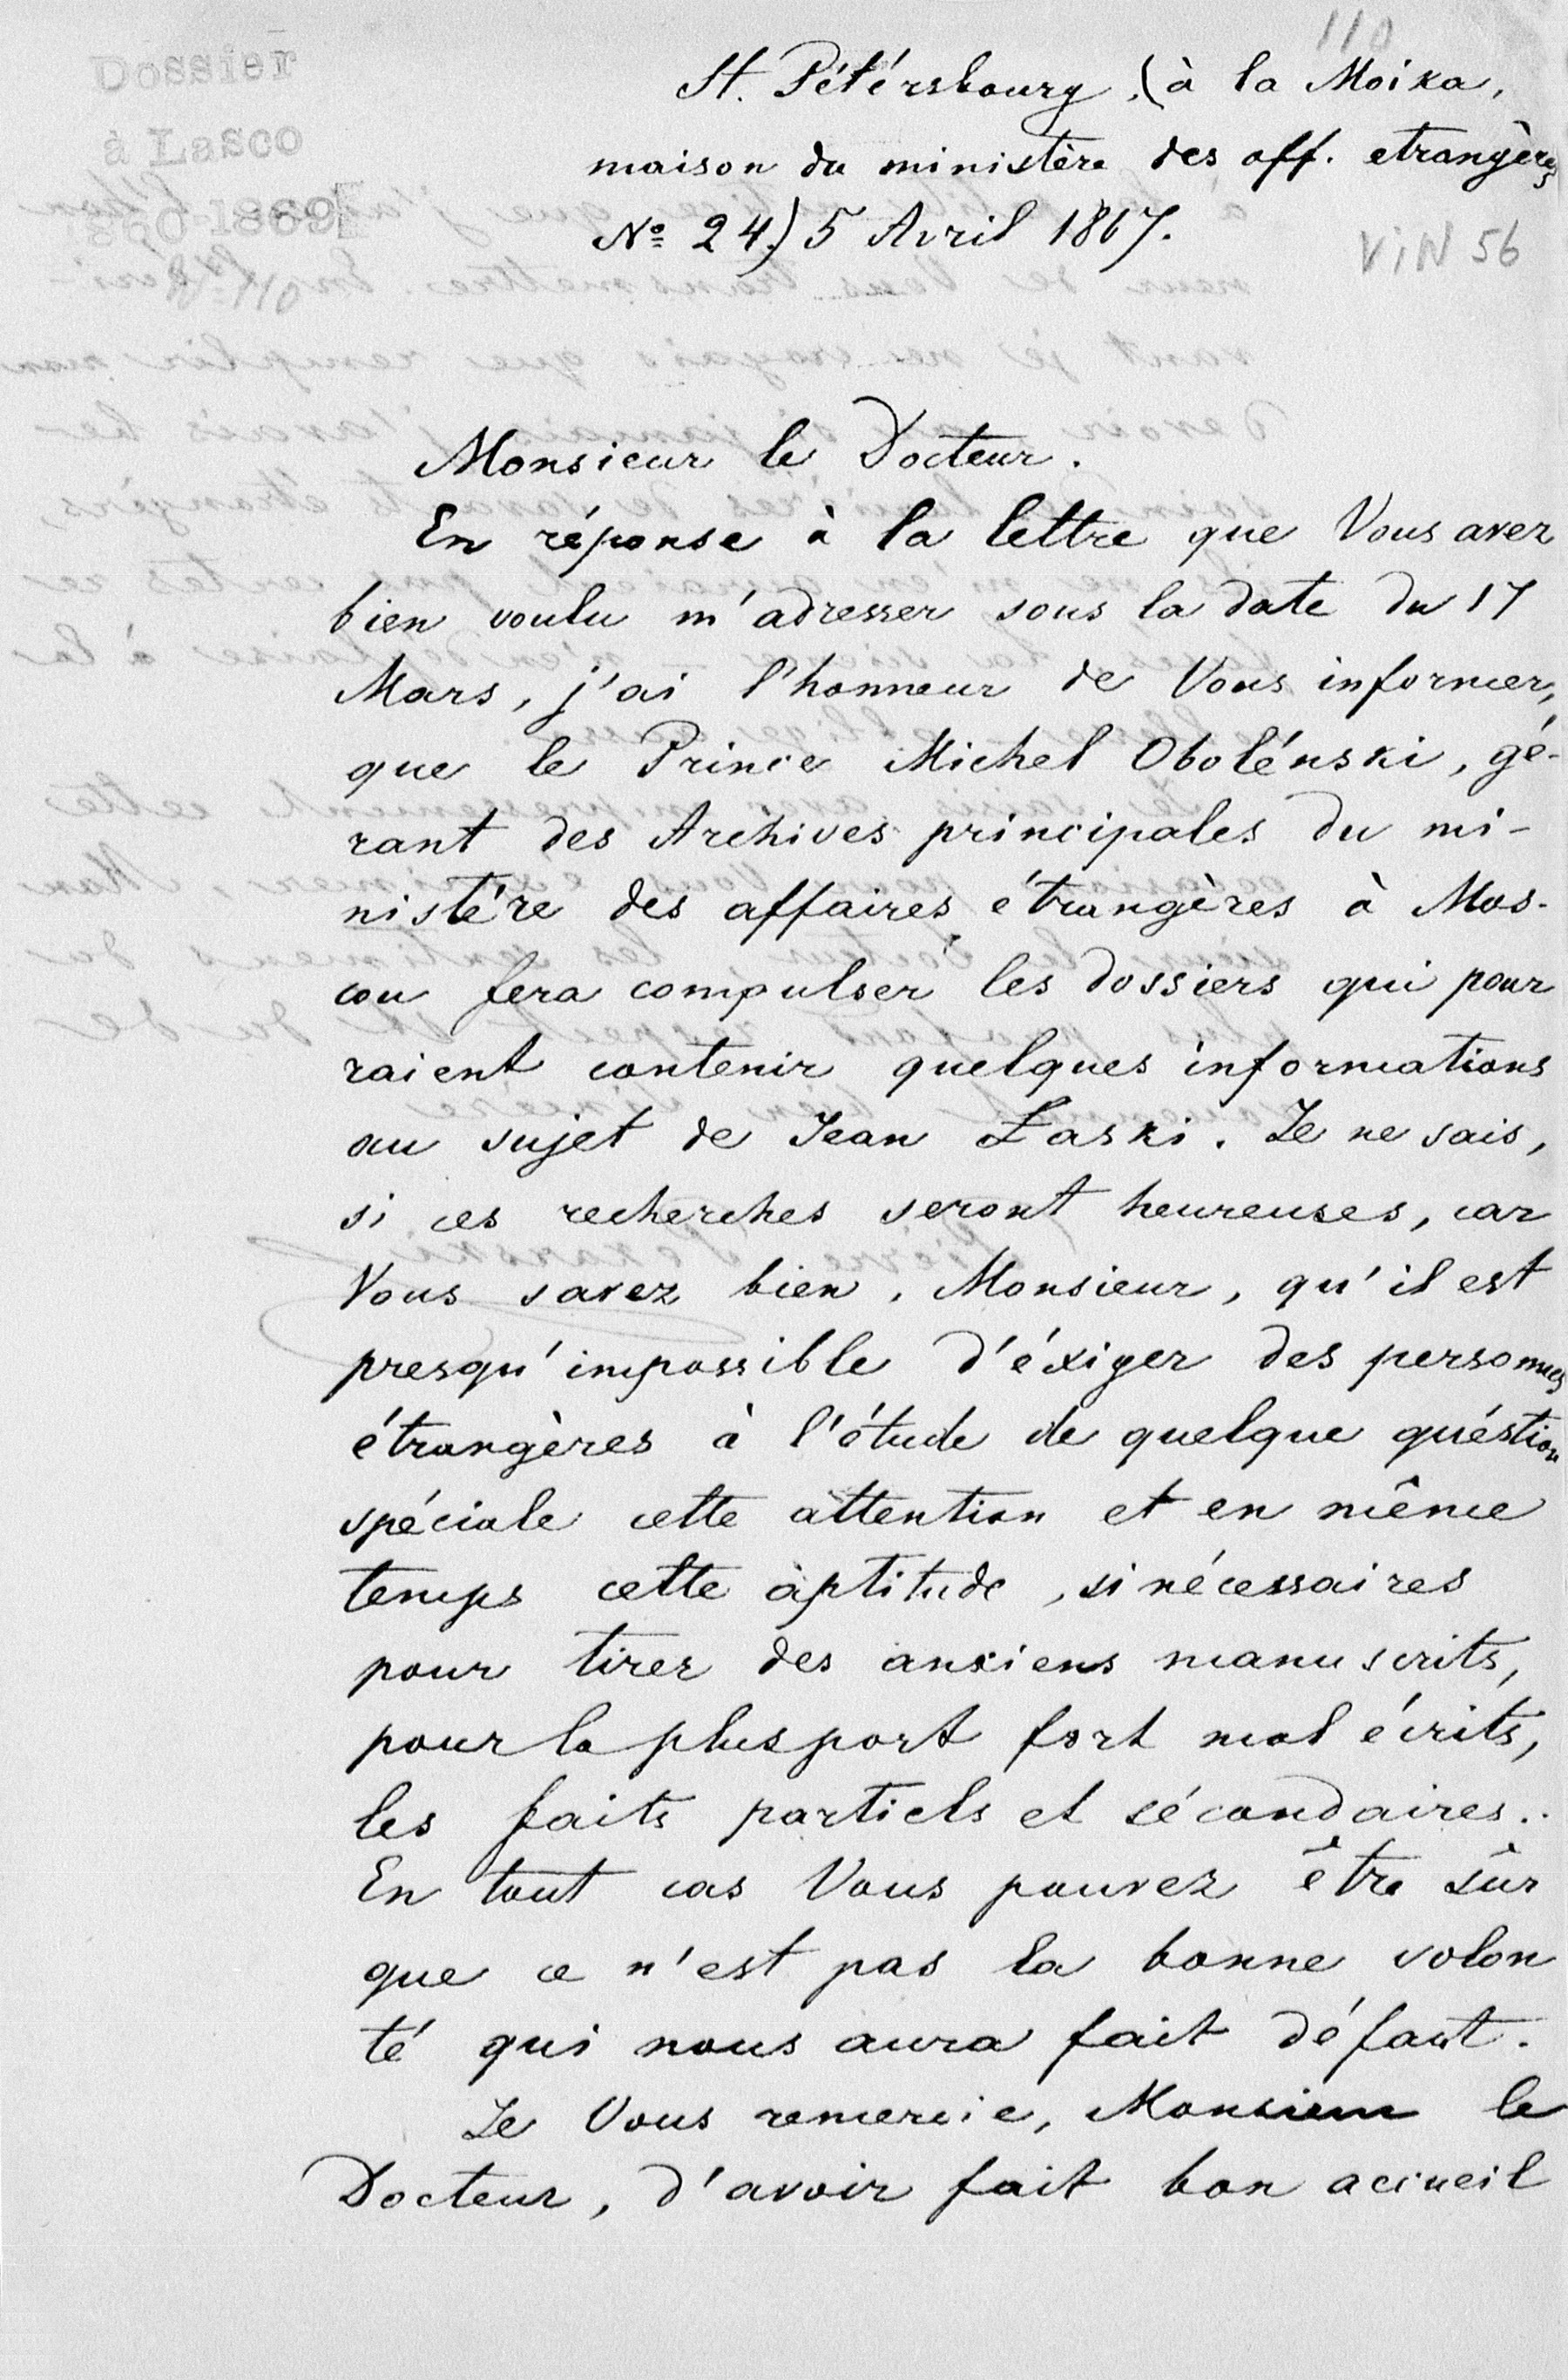 110
Dossier
à Lasco
1860-1869
No 110
St. Pétérsbourg, (à la Moika,
maison du ministère des aff. etrangères
No 24.) 5 Avril 1867.
ViN 56
Monsieur le Docteur.
En réponse à la lettre que Vous avez
bien voulu m'adresser sous la date du 17
Mars, j'ai l'honneur de Vous informer,
que le Prince Michel Obolénski, gé-
rant des Archives principales du mi-
nistére des affaires étrangères à Mos-
cou fera compulser les dossiers qui pour
raient contenir quelques informations
au sujet de Jean Łaski. Je ne sais,
si ces recherches seront heureuses, car
Vous savez bien, Monsieur, qu'il est
presqu'impossible d'éxiger des personnes
étrangères à l'étude de quelque quéstion
spéciale cette attention et en même
temps cette aptitude, si nécessaires
pour tirer des anciens manuscrits,
pour la pluspart fort mal écrits,
les faits partiels et sécondaires.
En tout cas Vous pouvez être sûr
que ce n'est pas la bonne volon
té qui nous aura fait défaut.
Je Vous remercie, Monsieur le
Docteur, d'avoir fait bon accueil